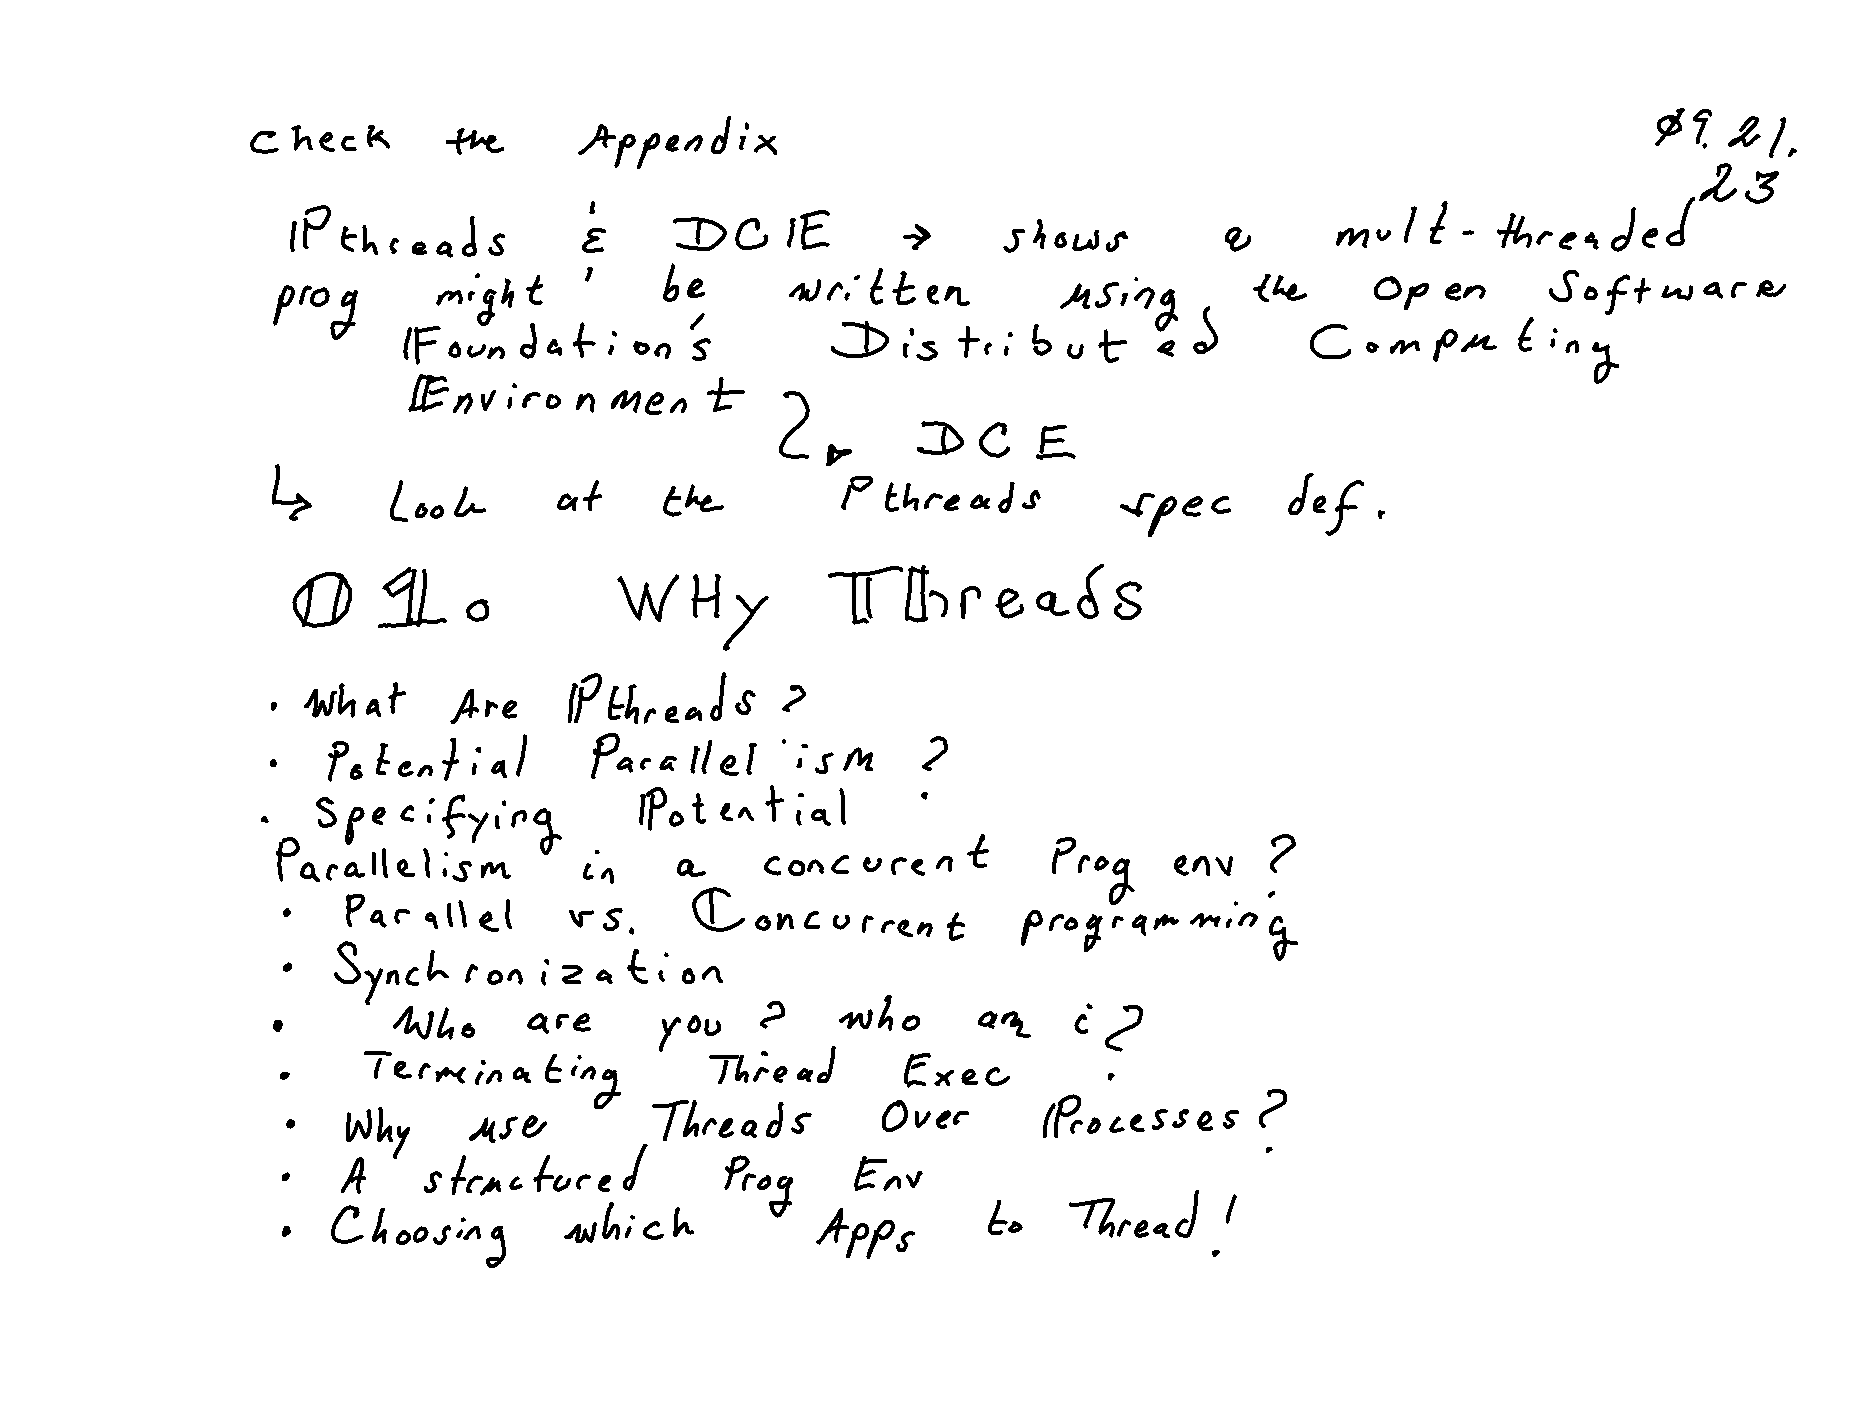 Check the Appendix
Ø9.21.
23
Pthreads & DCE → shows a mult-threaded
prog might be written using the Open Software
Foundation's Distributed Computing
Environment
DCE
↳ Look at the Pthreads spec def.
01. WHy Threads
· What Are Pthreads?
· Potential Parallelism?
· Specifying Potential
Parallelism in a concurent Prog env?
· Parallel vs. Concurrent programming
· Synchronization
· Who are you? who am i?
· Terminating Thread Exec
· Why use Threads Over Processes?
· A structured Prog Env
· Choosing which Apps to Thread!